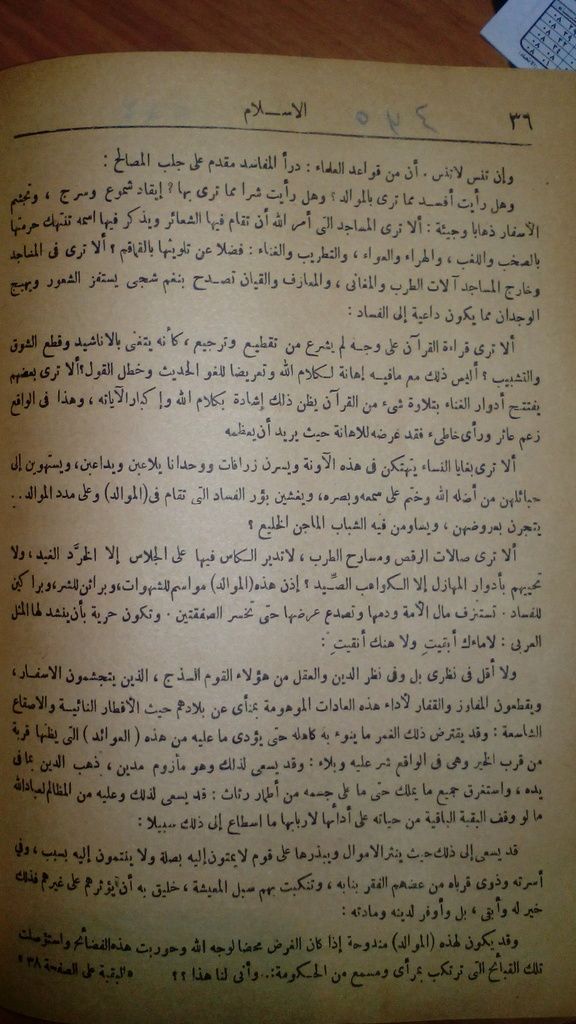 ٣٦
الاســـلام
وإن تنس لاتنس . أن من قواعد العلماء : درأ المفاسد مقدم على جلب المصالح :
وهل رأيت أفســد مما ترى بالموالد؟ وهل رأيت شرا مما ترى بها؟ إيقاد شموع وسرج ، وتجشم
الأسفار ذهابا وجيئة : ألا ترى المساجد التى أمر الله أن تقام فيها الشعائر ويذكر فيها اسمه تنتهك حرمتها
بالصخب واللغب ، والهراء والعواء ، والتطريب والغناء : فضلا عن تلويثها بالقاقم ؟ ألا ترى فى المساجد
وخارج المساجد آلات الطرب والمغانى ، والمعازف والقيان تصــدح بنغم شجى يستفز الشعور ويهيج
الوجدان مما يكون داعية إلى الفساد :
ألا ترى قراءة القرآن على وجــه لم يشرع من تقطيــع وترجيع ، كأنه يتغنى بالاناشيد وقطع الشوق
والتشبيب ؟ أليس ذلك مع مافيــه إهانة لــكلام الله وتعريضا للغو الحديث وخطل القول؟ ألا ترى بعضهم
يفتتح أدوار الغناء بتلاوة شىء من القرآن يظن ذلك إشادة بكلام الله وإكبار الآياته ، وهذا فى الواقع
زعم عائر ورأى خاطىء فقد عرضه للاهانة حيث يريد أن يعظمه
ألا ترى بغايا النساء يتهتكن فى هذه الآونة ويسرن زرافات ووحدانا يلاعبن ويداعبن، ويستهوين إلى
حبائلهن من أضله الله وختم على سمعه وبصره ، ويغشين بؤر الفساد التى تقام فى (الموالد) وعلى مدد الموالد ..
يتجرن بعروضهن ، ويساومن فيه الشباب الماجن الخليع ؟
ألا ترى صالات الرقص ومسارح الطرب ، لاتدير الــكاس فيها على الجلاس إلا الخرَّد الغيد ، ولا
تحييهم بأدوار المهازل إلا الــكواعب الصِّيد ؟ إذن هذه (الموالد) مواسم للشهوات، وبراثن للشر، وبراكين
للفساد . تستنزف مال الأمة ودمها وتصدع عرضها حتى تخسر الصفقتين . وتكون حرية بأن ينشد لها المثل
العربى : لاماءك أبقيتِ ولا هنك أنقيتِ :
ولا أقل فى نظرى بل وفى نظر الدين والعقل من هؤلاء القوم السذج ، الذين يتجشمون الاسفــار،
ويقطعون المفاوز والقفار لأداء هذه العادات الموهومة بمنأى عن بلادهم حيث الأقطار النائيــة والاصقاع
الشاسعة : وقد يقترض ذلك الغمر ما ينوء به كاهله حتى يؤدى ما عليه من هذه ( العوائد ) التى يظنها قربة
من قرب الخير وهى فى الواقع شر عليه وبلاء : وقد يسعى لذلك وهو مأزوم مدين ، ذهب الدين بما فى
يده ، واستغرق جميع ما يملك حتى ما على جسمه من أطمار رثاث : قد يسعى لذلك وعليه من المظالم لعباد الله
ما لو وقف البقية الباقية من حياته على أدائها لاربابها ما اسطاع إلى ذلك سبيلا :
قد يسعى إلى ذلك حيث ينثر الاموال ويبذرها على قوم لايمتون إليه بصلة ولا ينتمون إليه بسبب ، وفى
أسرته وذوى قرباه من عضهم الفقر بنابه ، وتنكبت بهم سبل المعيشة ، خليق به أن يؤثرهم على غيرهم فذلك
خير له وأبقى ، بل وأوفر لدينه ومادته :
وقد يكون لهذه (الموالد) مندوحة إذا كان الغرض محضا لوجه الله وحوربت هذه الفضائح واستؤصلت
تلك القبائح التى ترتكب بمرأى ومسمع من الحــكومة: .. وأنى لنا هذا ؟؟ «البقية على الصفحة ٣٨»